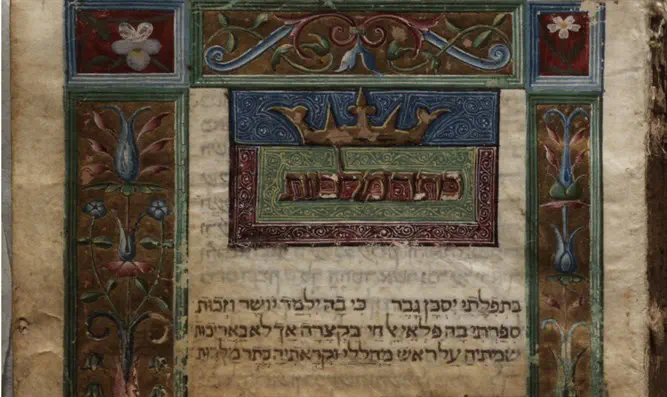 כתר מלכות
בתפלתי יסכן גבר כי בה ילמד יושר וזכות
ספרתי בה פלאי אל חי בקצרה אך לא באריכות
שמתיה על ראש מהללי וקראתיה כתר מלכות